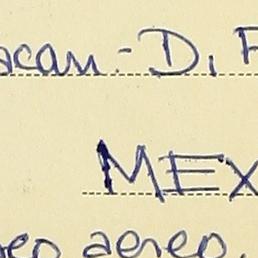 acan - D. F
MEX
eo aereo.